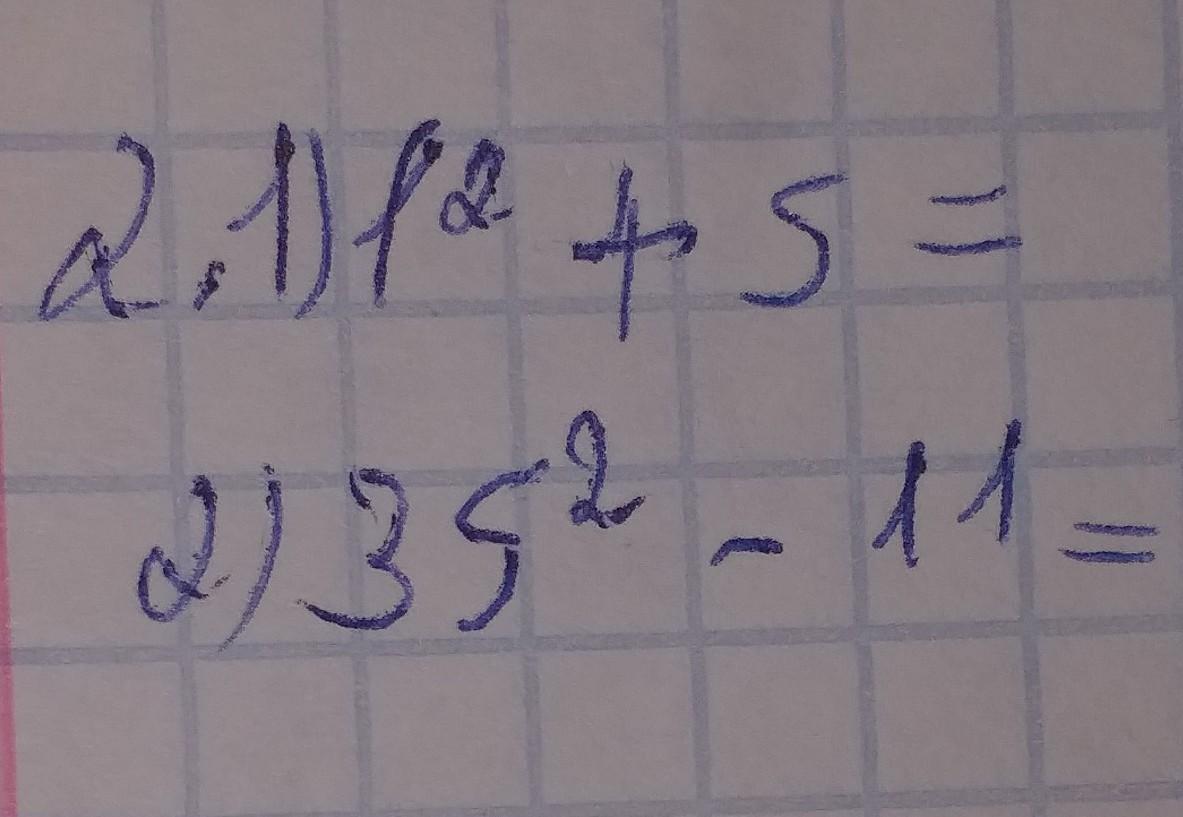 2.1) 1² + 5 =
2) 35² - 11 =